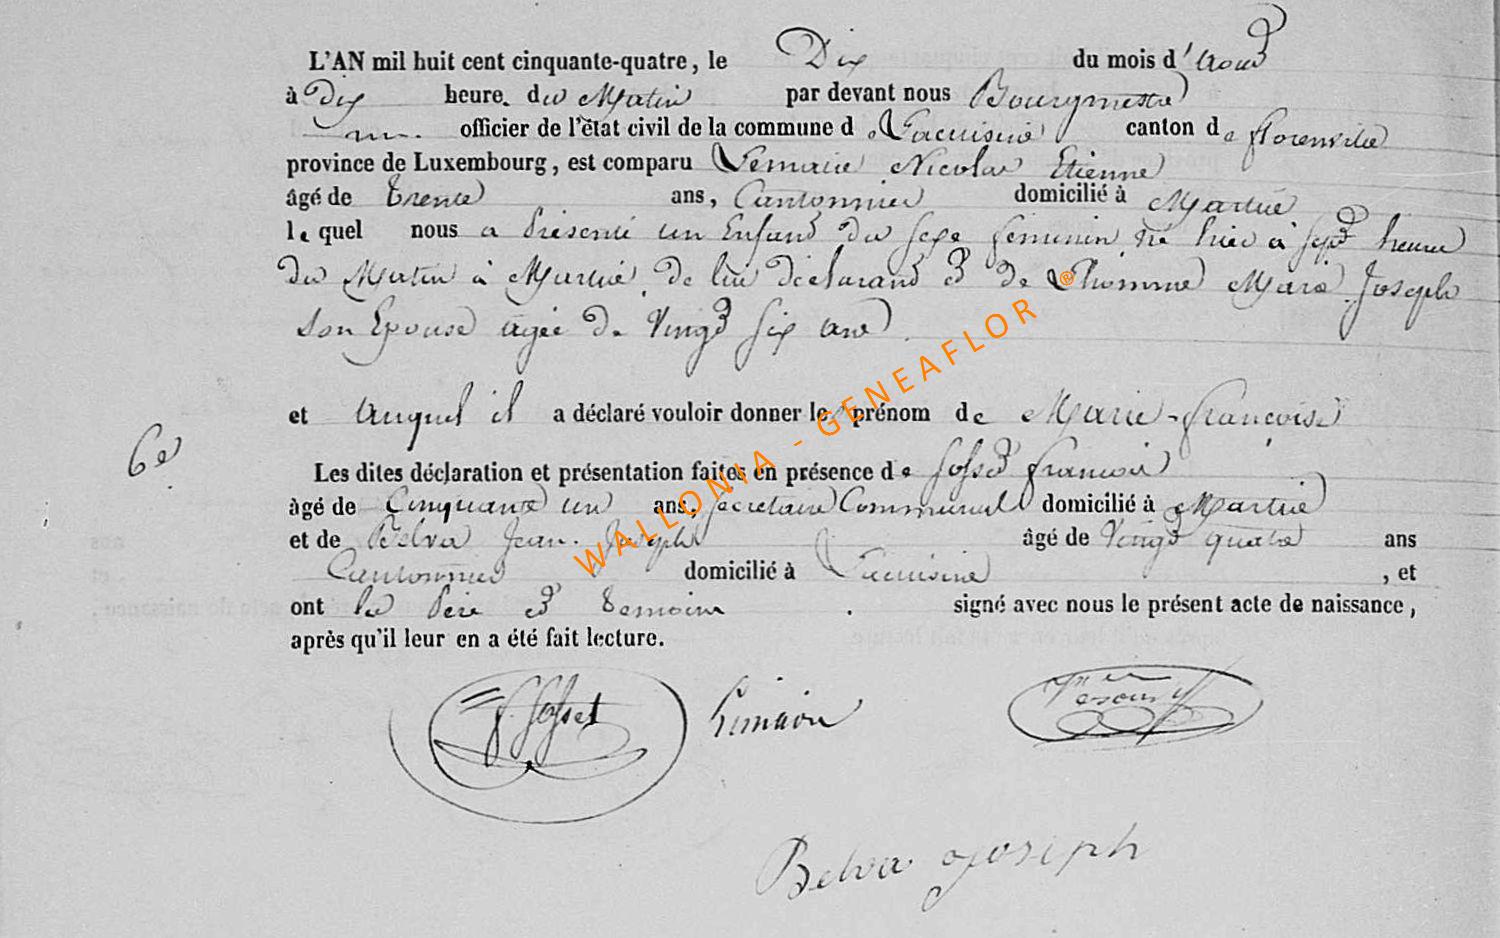 L'AN mil huit cent cinquante-quatre, le Dix du mois d'Aout
à Dix heure. du Matin par devant nous Bourgmestre
officier de l'état civil de la commune de Lacuisine canton de florenville
province de Luxembourg, est comparu Lemaire Nicolas Etienne
âgé de trente ans, Cantonnier domicilié à Martué
le quel nous a présenté un Enfant du sexe feminin né hier à sept heures
du Matin à Martué, de lui déclarant et de Lhomme Marie Joseph
son Epouse agée de Vingt six ans
et auquel il a déclaré vouloir donner les prénom de Marie-françoise
6e
Les dites déclaration et présentation faites en présence de Gosset françois
âgé de Cinquante un ans, secretaire Communal domicilié à Martué
et de Belva Jean Joseph âgé de Vingt quatre ans
Cantonnier domicilié à Lacuisine, et
ont les Père et temoins signé avec nous le présent acte de naissance,
après qu'il leur en a été fait lecture.
Gosset Lemaire
Belva Joseph
WALLONIA - GENEAFLOR ®